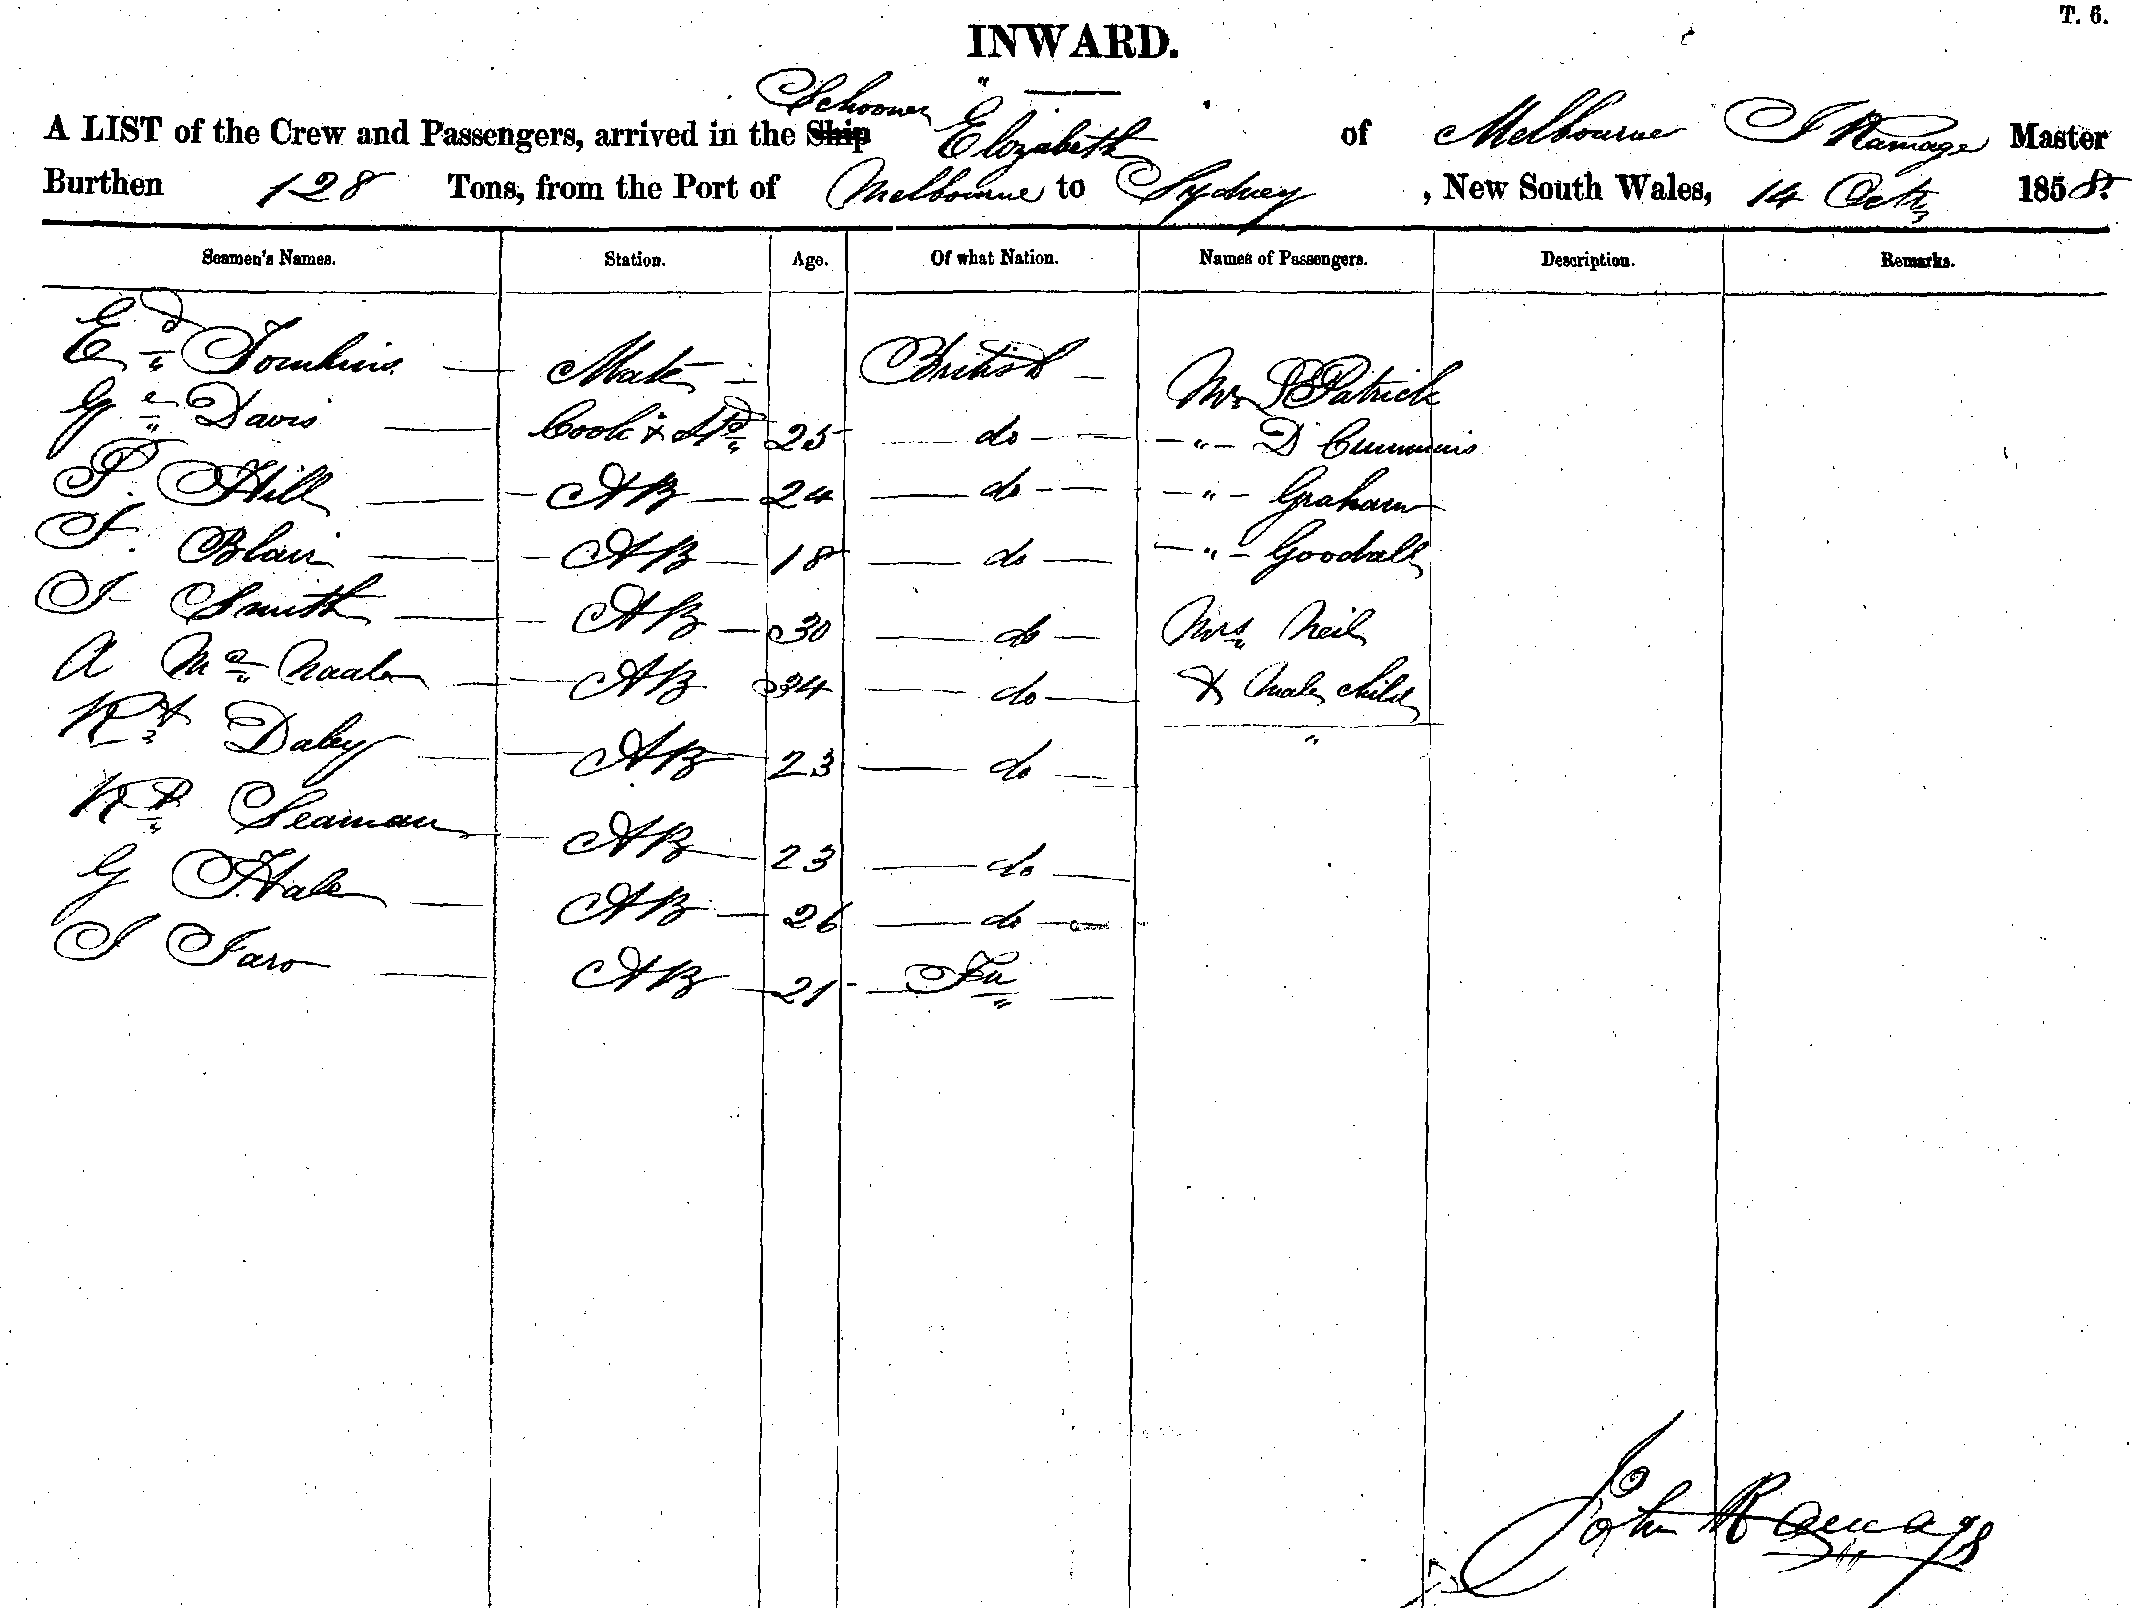 T. 6.
INWARD.
A LIST of the Crew and Passengers, arrived in the Ship Schooner Elizabeth of Melbourne J Ramage Master
Burthen 128 Tons, from the Port of Melbourne to Sydney, New South Wales, 14 Oct 1858
Seamen's Names. Station. Age. Of what Nation. Names of Passengers. Description. Remarks.
Ed Tomkins Mate British Mr Patrick
Ge Davis Cook & Std 25 do " D Cummins
P. Hill AB 24 do " Graham
J. Blair AB 18 do " Goodall
J Smith AB 30 do Mrs Neil
A Mc AB 34 do & Male child
Rt Daley AB 23 do
Rd Seaman AB 23 do
G Hale AB 26 do
J Faro AB 21
John Ramage